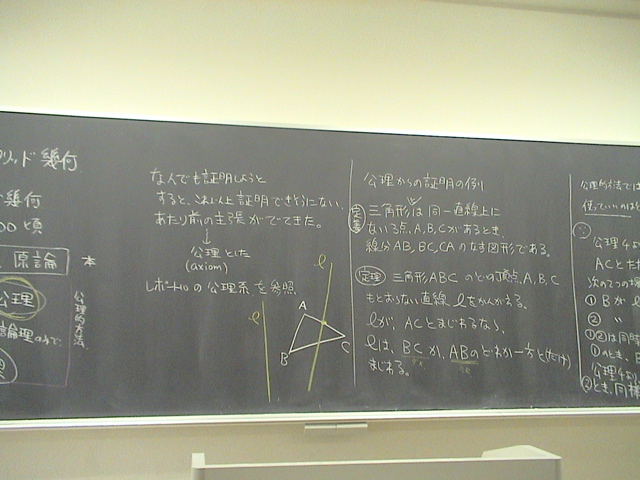 リッド幾何
幾何
00頃
原論 本
公理
公理的方法
論理のみで、
なんでも証明しようと
すると、これ以上証明できそうにない、
あたり前の主張がでてきた。
↓
公理とした
(axiom)
の公理系を参照
ℓ
ℓ
A
B
C
公理からの証明の例
定義 三角形は同一直線上に
ない3点、A,B,Cがあるとき、
線分AB,BC,CAのなす図形である。
定理 三角形ABCのどの頂点、A,B,C
もとおらない直線ℓをかんがえる。
ℓが、ACとまじわるなら、
ℓは、BCか、ABのどれか一方と(だけ)
まじわる。
公理的方法では
使っていいのは
∵
公理
ACと
次の2つの場
① Bがℓ
② 〃
①②は同時
①のとき、
公理4より
②とき、同様